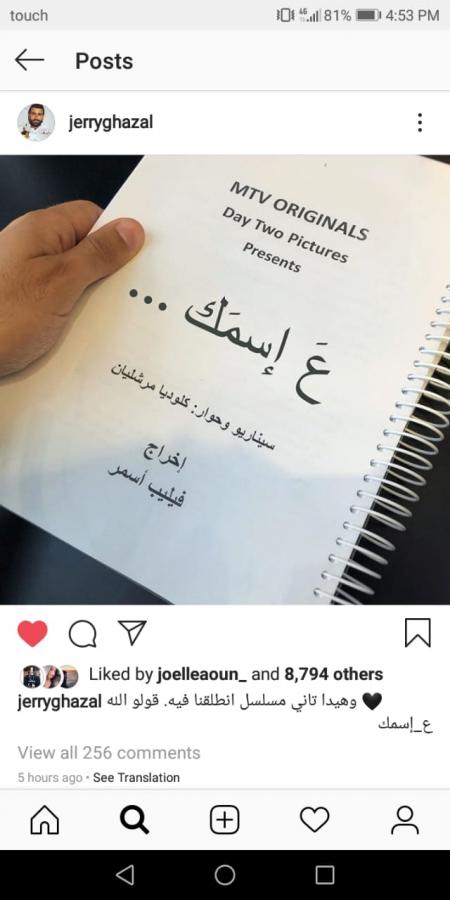 touch
4G 81% 4:53 PM
Posts
jerryghazal
MTV ORIGINALS
Day Two Pictures
Presents
عَ إسمَك ...
سيناريو وحوار: كلوديا مرشليان
إخراج
فيليب أسمر
Liked by joelleaoun_ and 8,794 others
jerryghazal وهيدا تاني مسلسل انطلقنا فيه. قولو الله 🖤
ع_إسمك
View all 256 comments
5 hours ago • See Translation